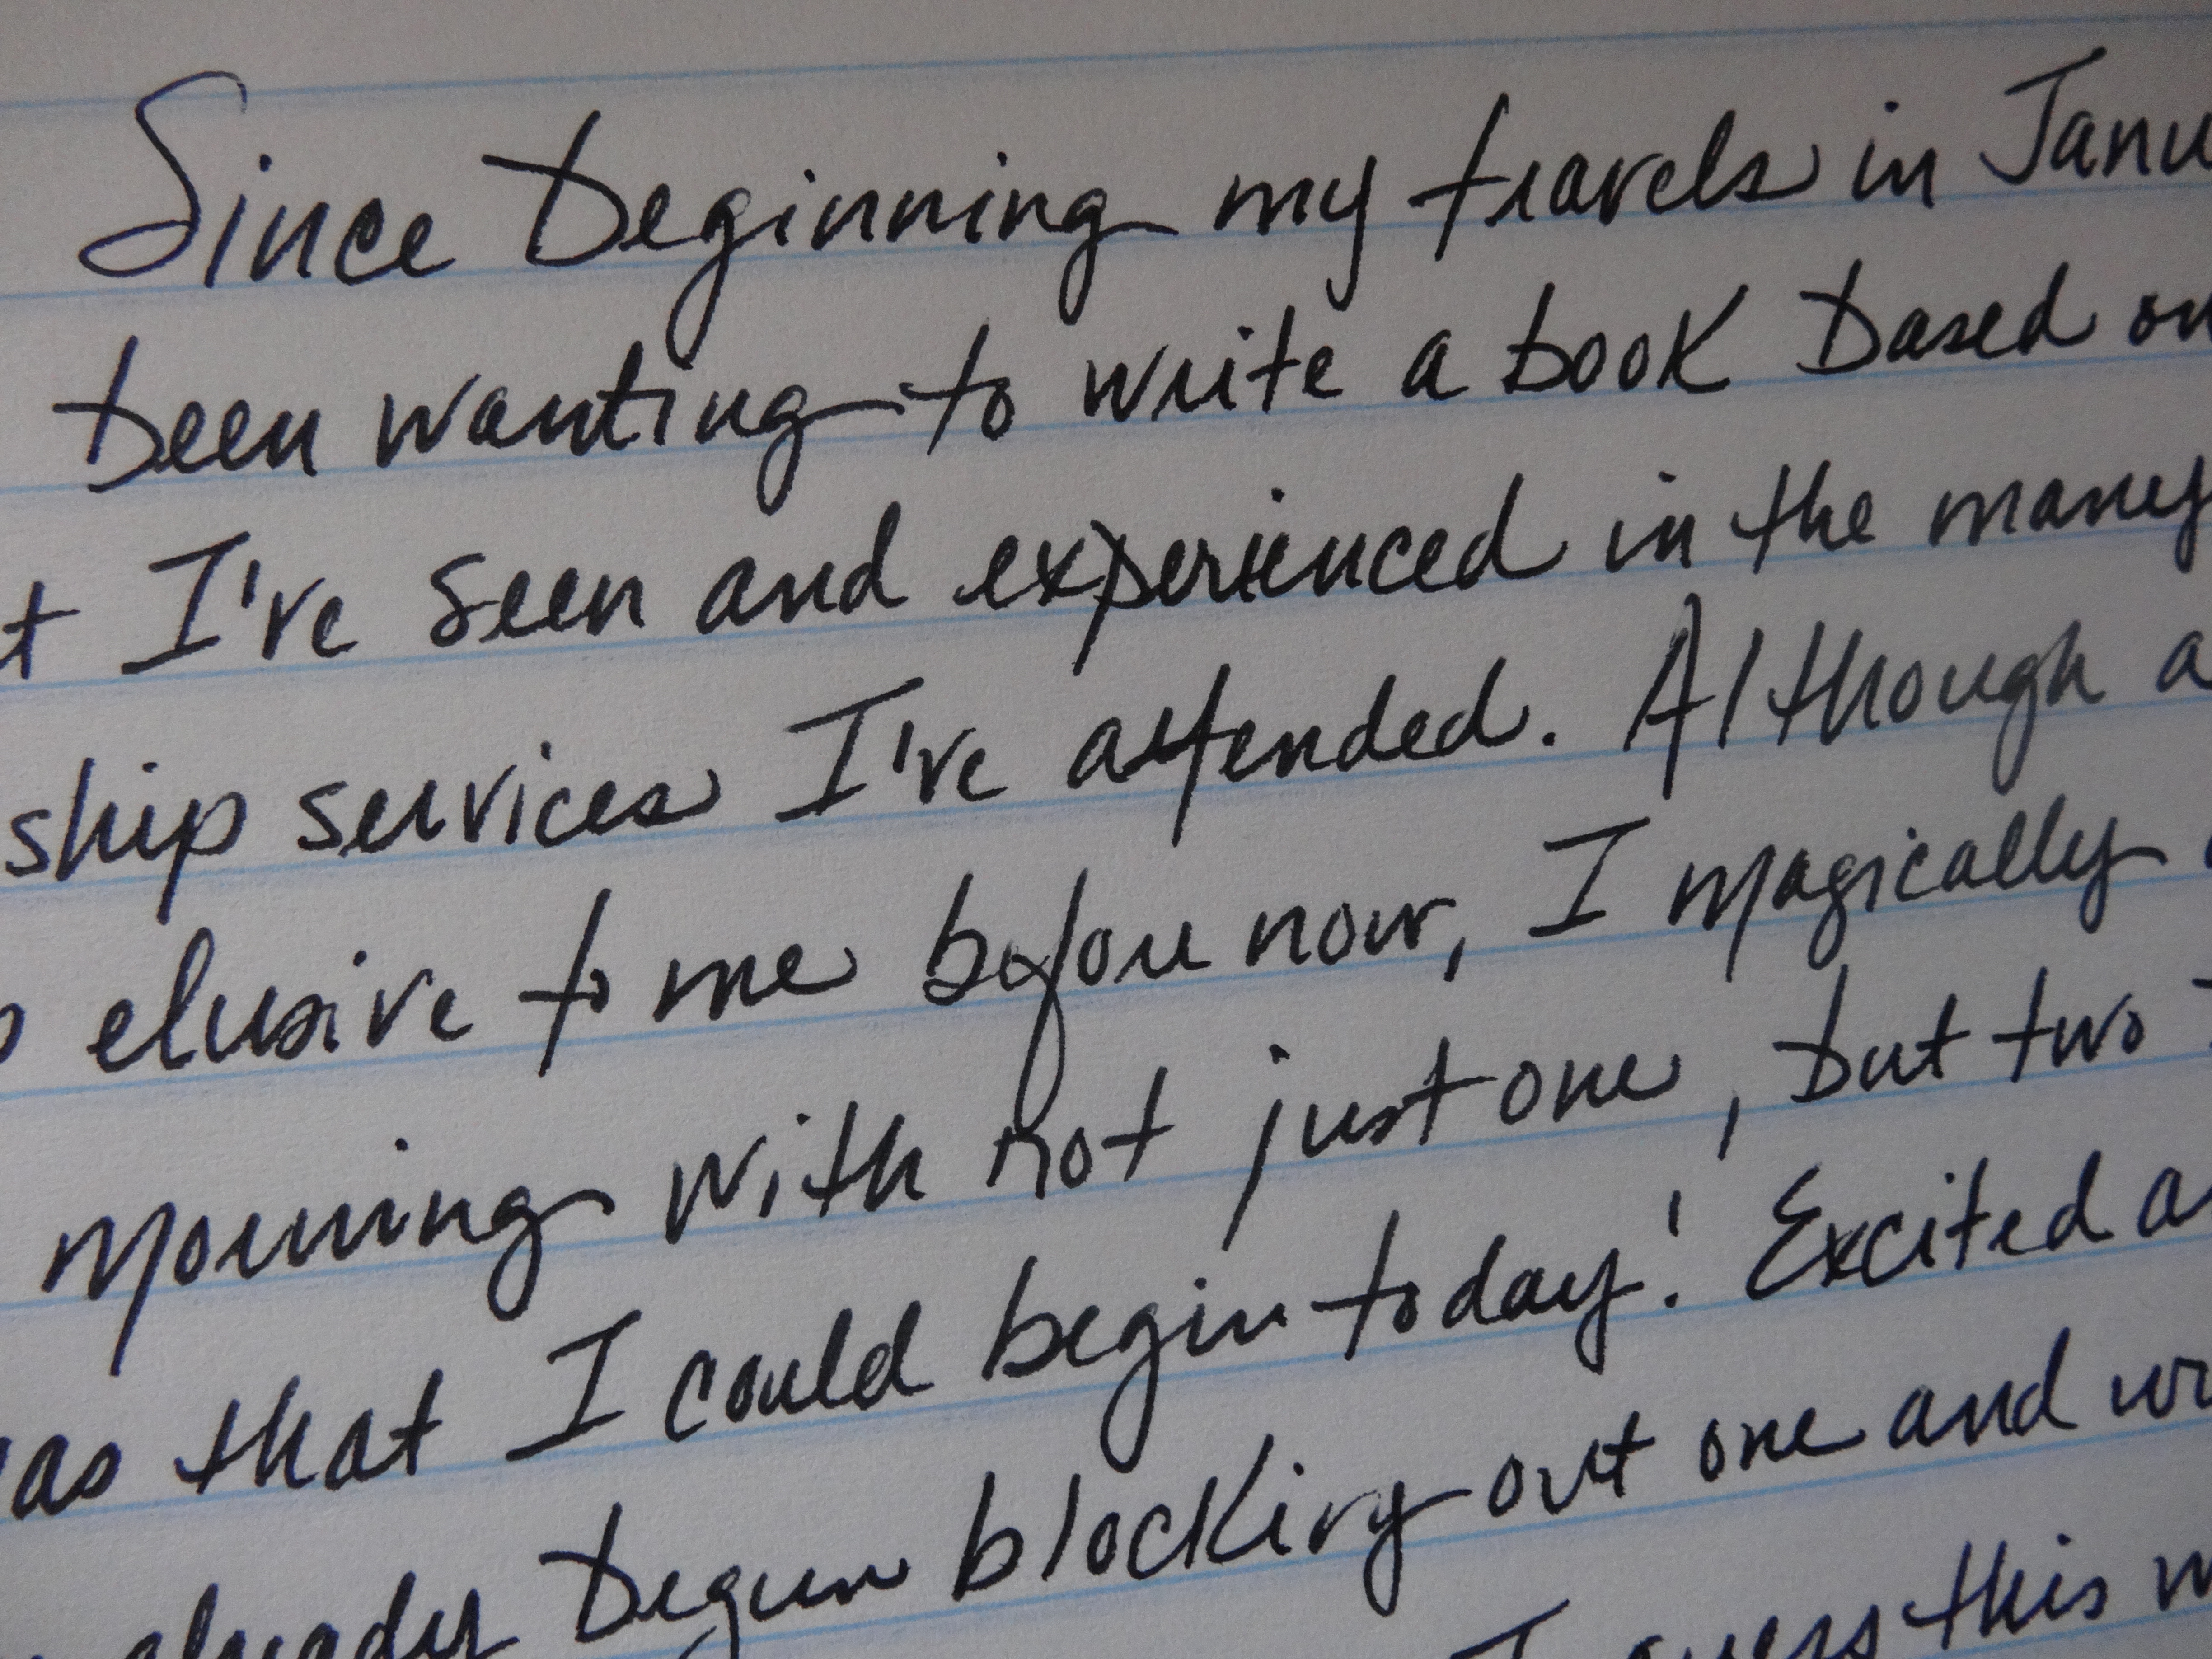 Since beginning my travels in Janu
been wanting to write a book based on
t I've seen and experienced in the many
ship services I've attended. Although a
elusive to me before now, I magically
morning with not just one, but two
as that I could begin today! Excited a
already begun blocking out one and wr
I guess this